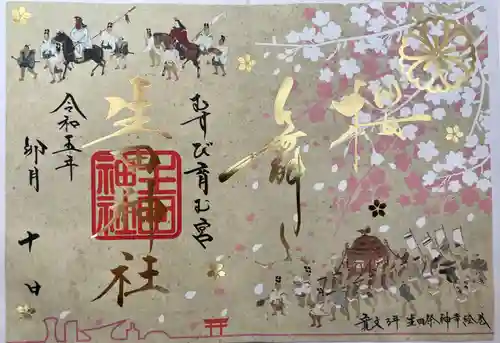 桜
舞
むすび育む宮
生田神社
生田神社
令和五年
卯月
十日
寛文3年 生田祭神幸絵巻